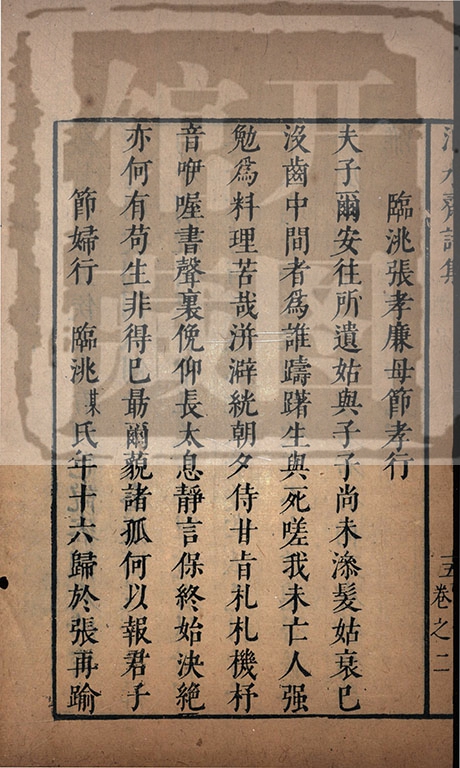 五卷之二
臨洮張孝廉母節孝行
夫子爾安往所遺姑與子子尚未滲髮姑衰已
沒齒中間者爲誰躊躇生與死嗟我未亡人强
勉爲料理苦哉洴澼絖朝夕侍甘旨札札機杼
音咿喔書聲裏俛仰長太息靜言保終始決絕
亦何有苟生非得已最爾藐諸孤何以報君子
節婦行 臨洮某氏年十六歸於張再踰